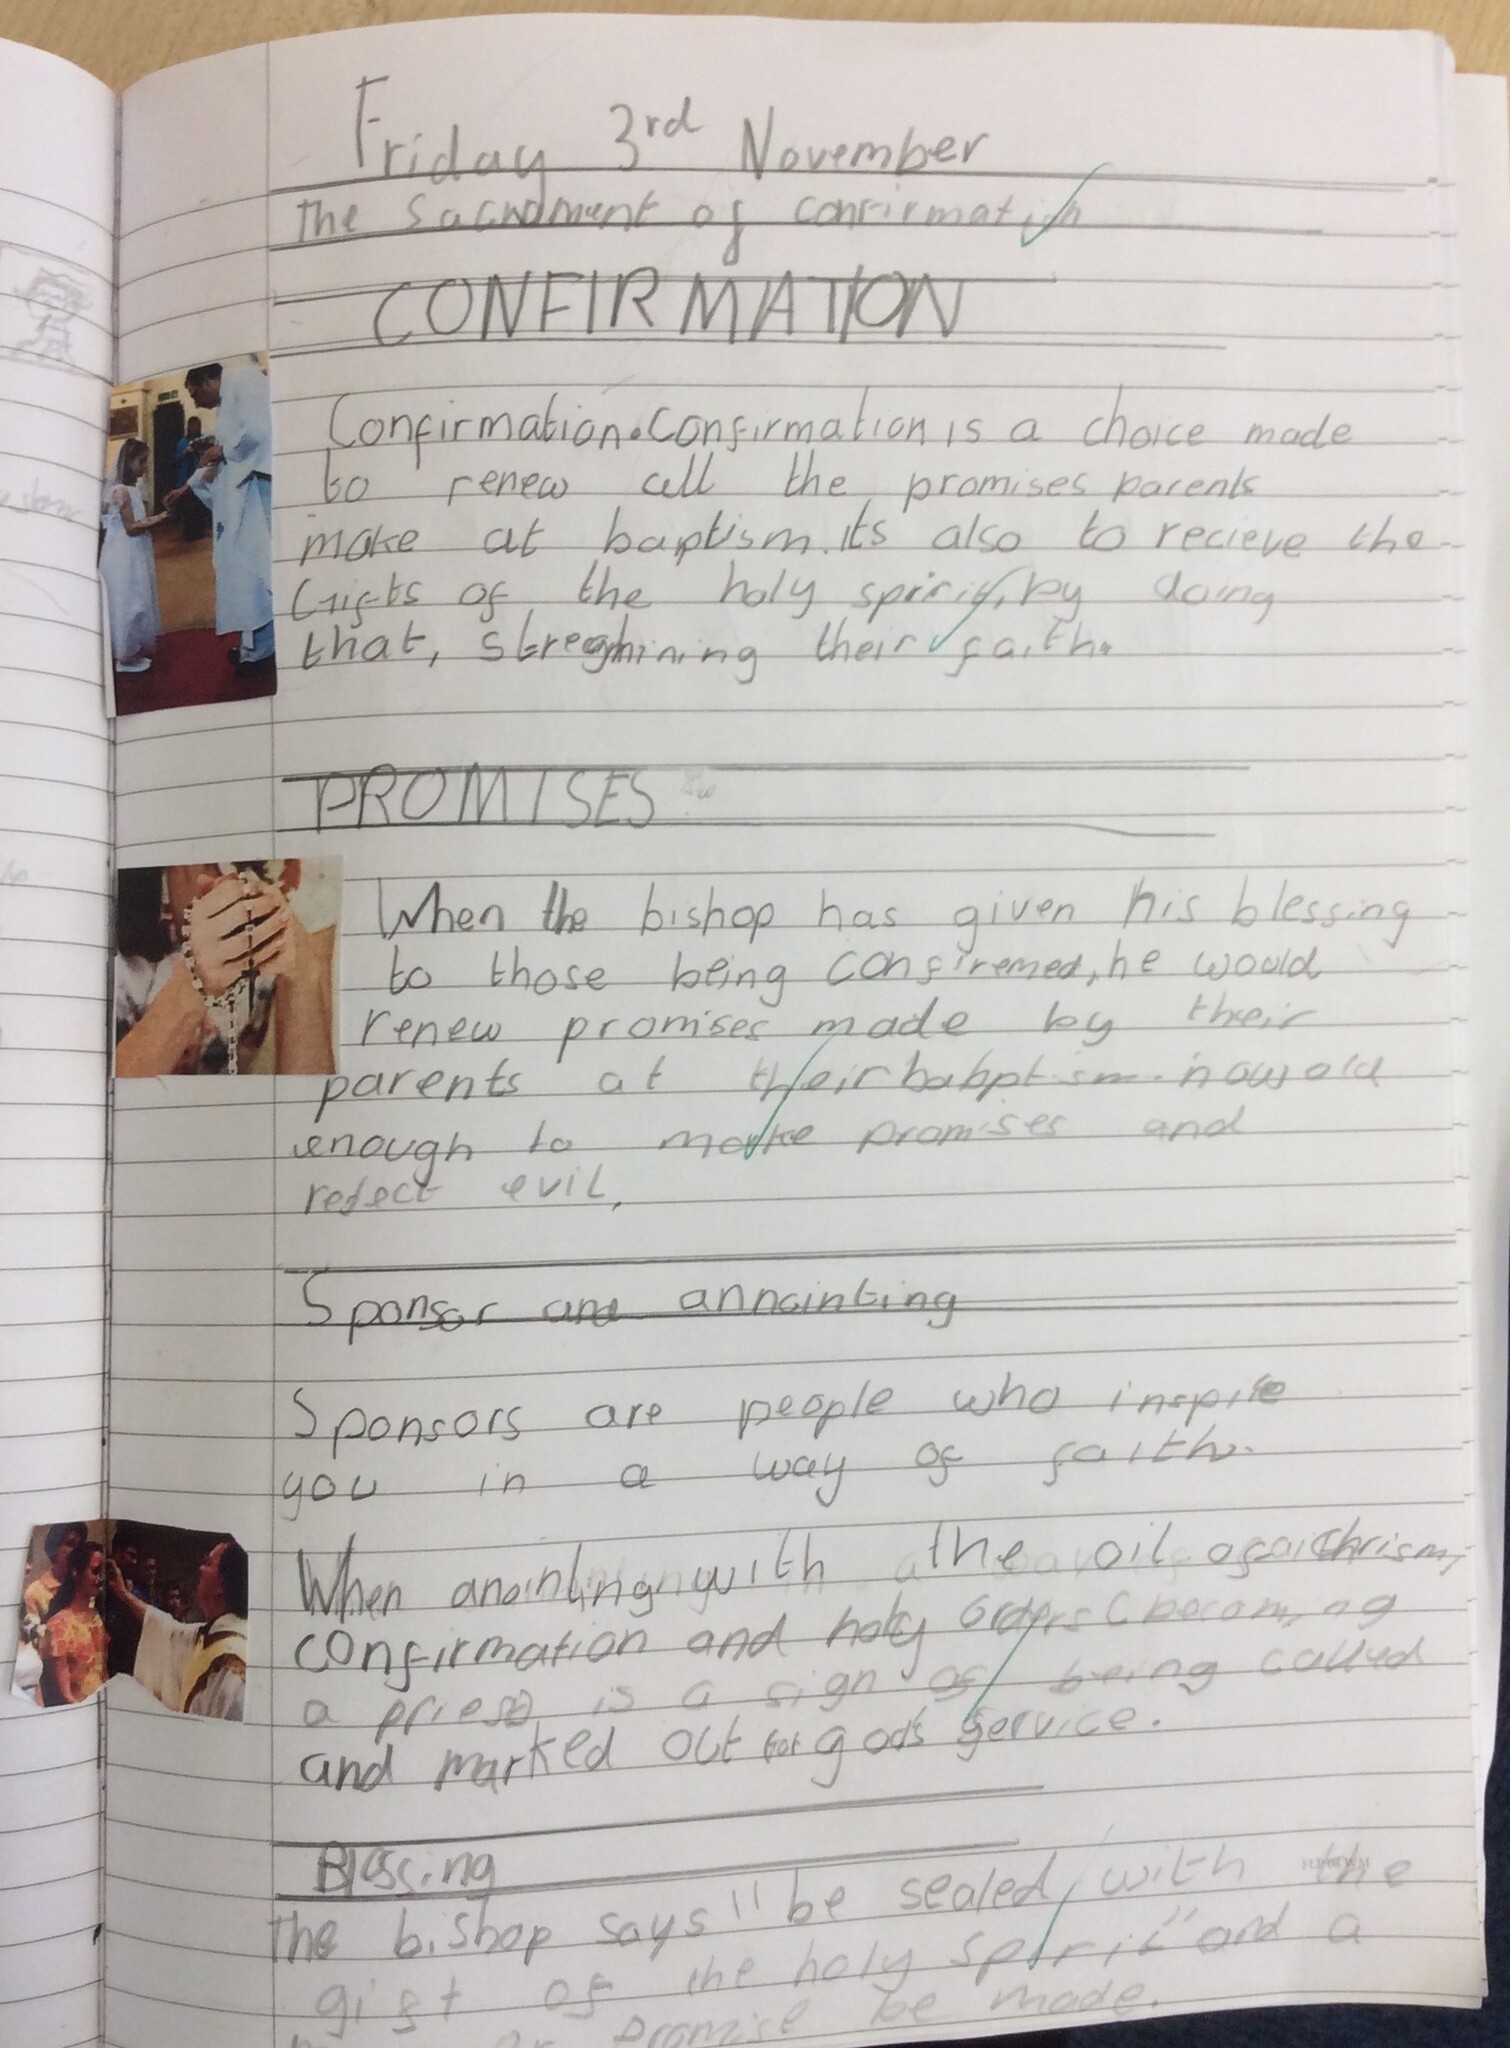 Friday 3rd November
the Sacrament of confirmation
CONFIRMATION
Confirmation. Confirmation is a choice made
to renew all the promises parents
make at baptism. its also to recieve the
Gifts of the holy spirit, by doing
that, streghining their faith.
PROMISES
When the bishop has given his blessing
to those being confiremed, he would
renew promises made by their
parents at their babptism. now old
enough to make promises and
reject evil,
Sponsor and annointing
Sponsors are people who inspire
you in a way of faith.
When anointing with the oil of Chrism,
confirmation and holy orders (becoming
a priest) is a sign of being called
and marked out for god's service.
Blessing
The bishop says "be sealed with the
gift of the holy spirit" and a
or promise be made.